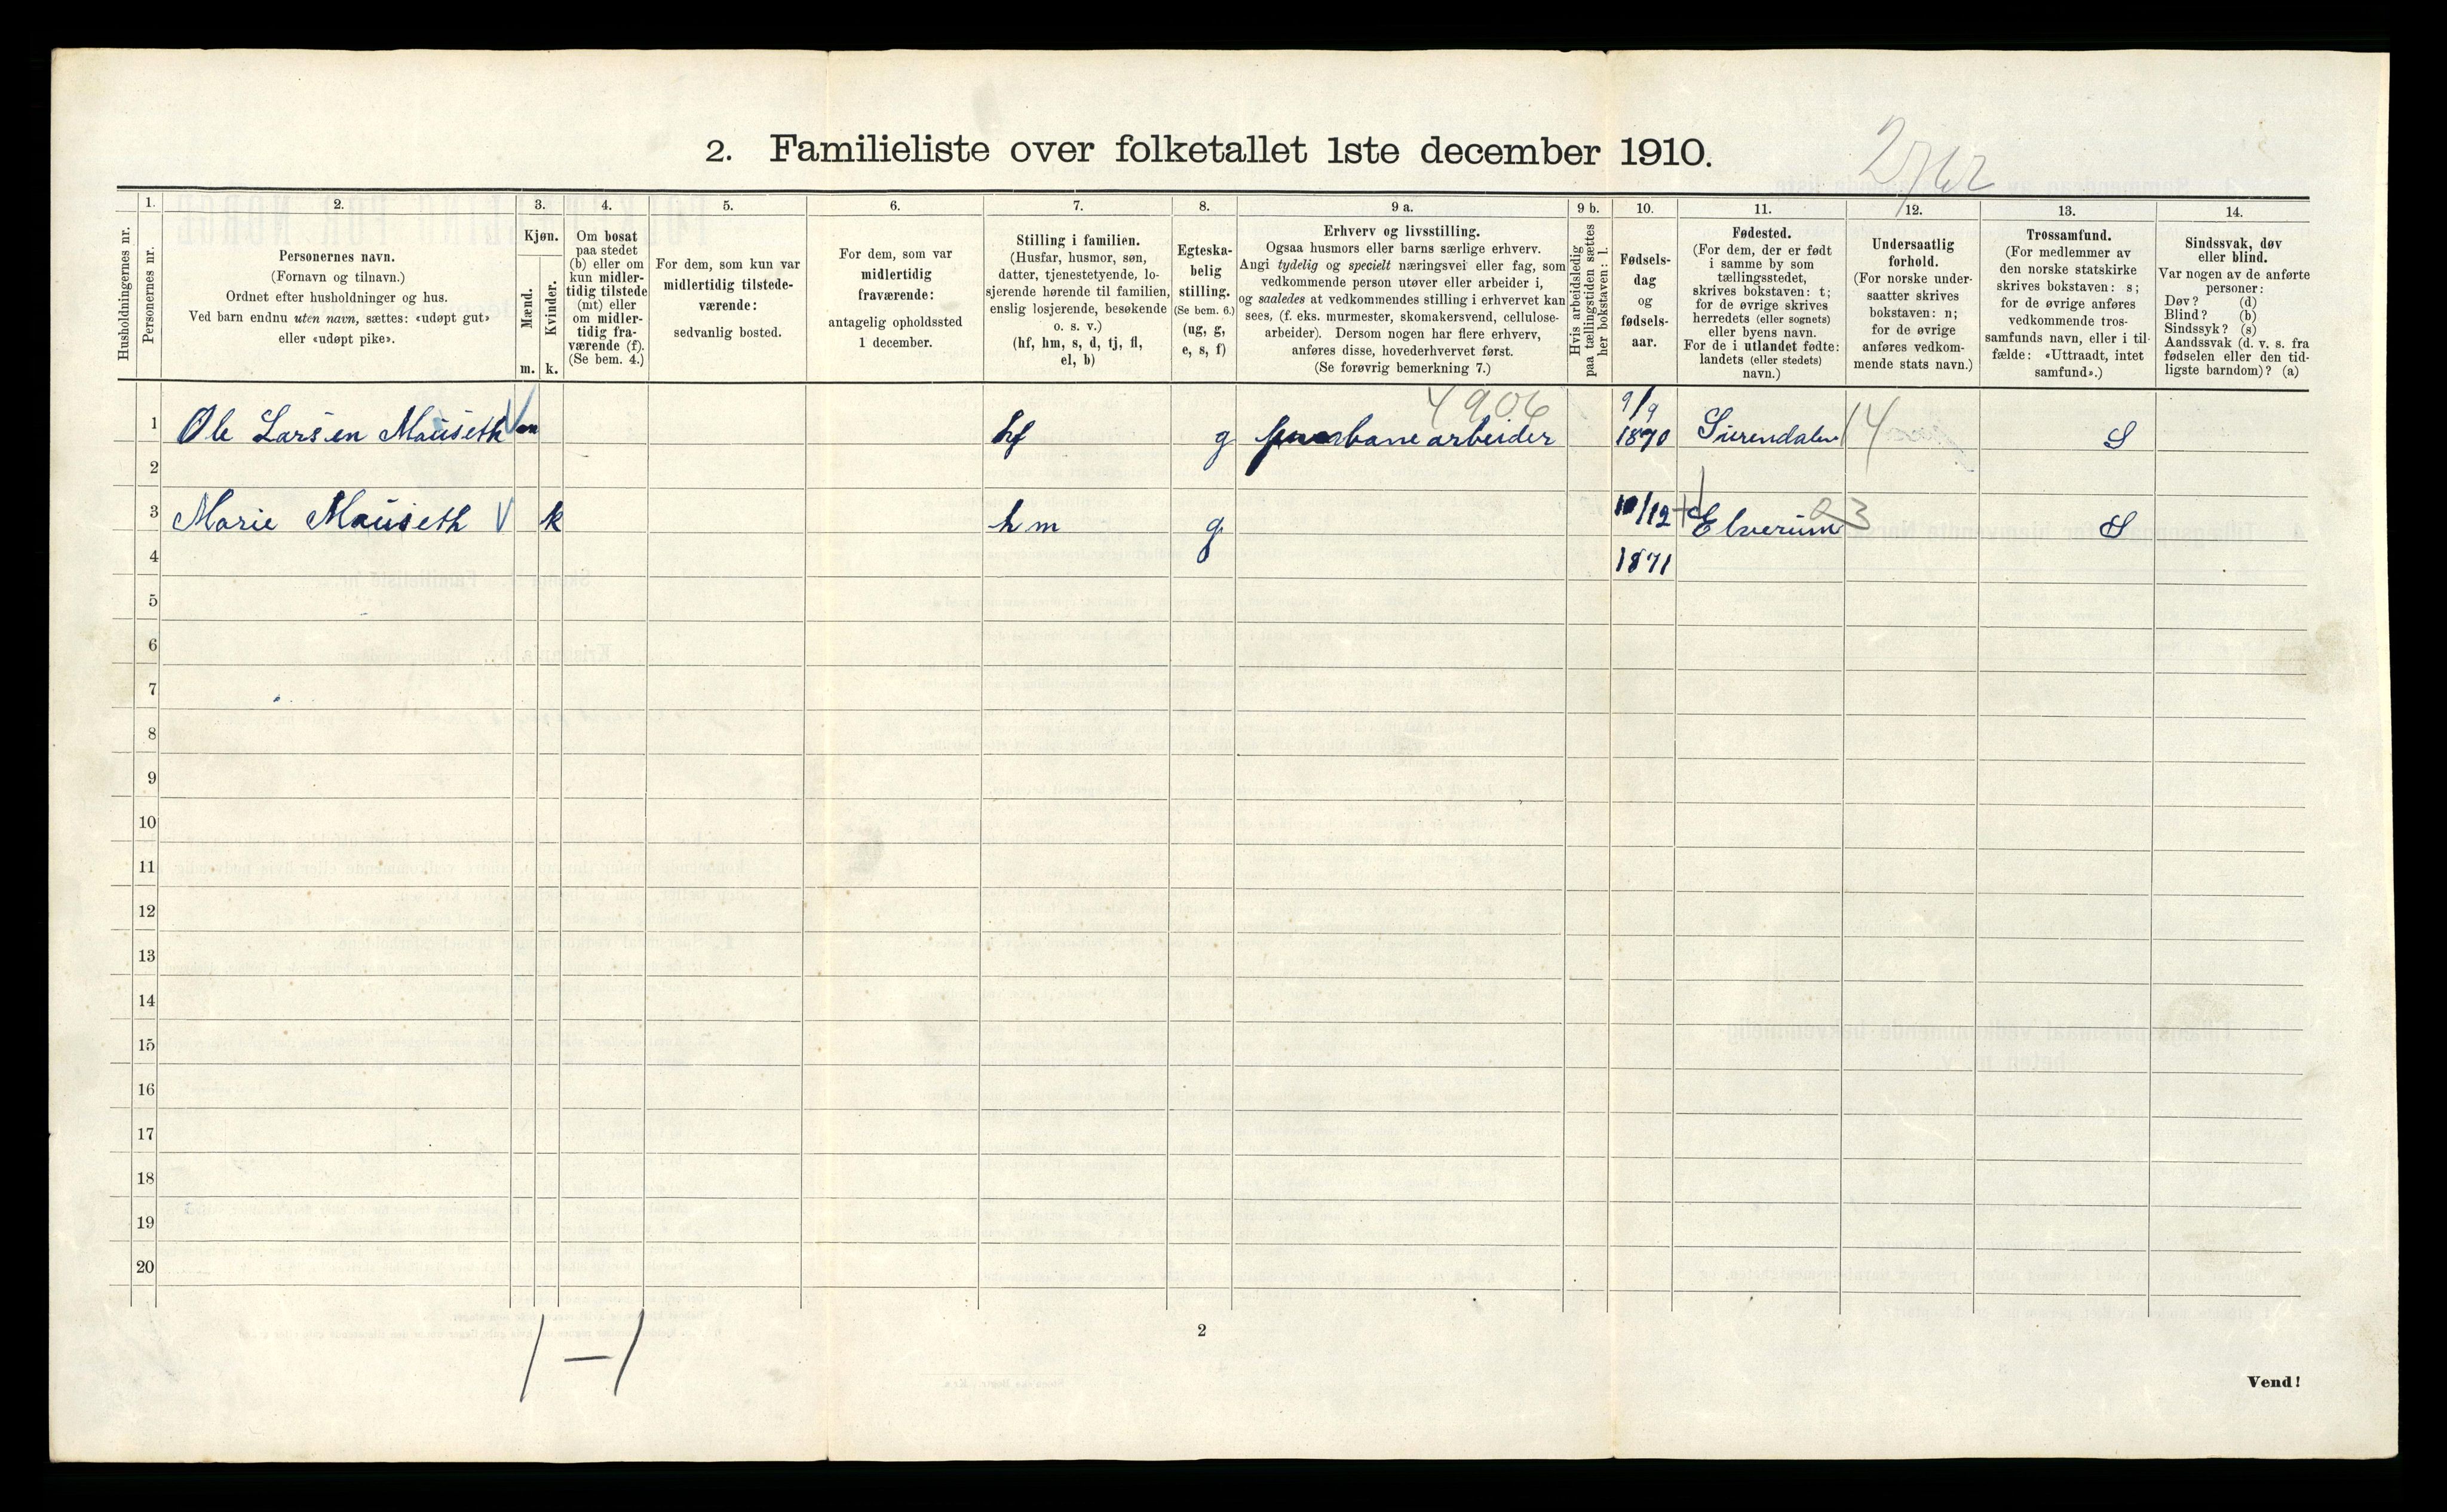 2. Familieliste over folketallet 1ste december 1910.
2762
Husholdningernes nr.
1.
Personernes nr.
2.
Personernes navn.
(Fornavn og tilnavn.)
Ordnet efter husholdninger og hus.
Ved barn endnu uten navn, sættes: «udøpt gut»
eller «udøpt pike».
3.
Kjøn.
Mænd.
Kvinder.
m. k.
4.
Om bosat
paa stedet
(b) eller om
kun midler-
tidig tilstede
(mt) eller
om midler-
tidig fra-
værende (f).
(Se bem. 4.)
5.
For dem, som kun var
midlertidig tilstede-
værende:
sedvanlig bosted.
6.
For dem, som var
midlertidig
fraværende:
antagelig opholdssted
1 december.
7.
Stilling i familien.
(Husfar, husmor, søn,
datter, tjenestetyende, lo-
sjerende hørende til familien,
enslig losjerende, besøkende
o. s. v.)
(hf, hm, s, d, tj, fl,
el, b)
8.
Egteska-
belig
stilling.
(Se bem. 6.)
(ug, g,
e, s, f)
9 a.
Erhverv og livsstilling.
Ogsaa husmors eller barns særlige erhverv.
Angi tydelig og specielt næringsvei eller fag, som
vedkommende person utøver eller arbeider i,
og saaledes at vedkommendes stilling i erhvervet kan
sees, (f. eks. murmester, skomakersvend, cellulose-
arbeider). Dersom nogen har flere erhverv,
anføres disse, hovederhvervet først.
(Se forøvrig bemerkning 7.)
9 b.
Hvis arbeidsledig
paa tællingstiden sættes
her bokstaven: l.
10.
Fødsels-
dag
og
fødsels-
aar.
11.
Fødested.
(For dem, der er født
i samme by som
tællingsstedet,
skrives bokstaven: t;
for de øvrige skrives
herredets (eller sognets)
eller byens navn.
For de i utlandet fødte:
landets (eller stedets)
navn.)
12.
Undersaatlig
forhold.
(For norske under-
saatter skrives
bokstaven: n;
for de øvrige
anføres vedkom-
mende stats navn.)
13.
Trossamfund.
(For medlemmer av
den norske statskirke
skrives bokstaven: s;
for de øvrige anføres
vedkommende tros-
samfunds navn, eller i til-
fælde: «Uttraadt, intet
samfund».)
14.
Sindssvak, døv
eller blind.
Var nogen av de anførte
personer:
Døv? (d)
Blind? (b)
Sindssyk? (s)
Aandssvak (d. v. s. fra
fødselen eller den tid-
ligste barndom)? (a)
4906
1 Ole Larsen Mauseth m hf g banearbeider 9/9 1890 Surendalen 14 S
2
3 Marie Mauseth k hm g 10/12 Elverum 03 S
4 1871
5
6
7
8
9
10
11
12
13
14
15
16
17
18
19
20
1–1
2
Vend!